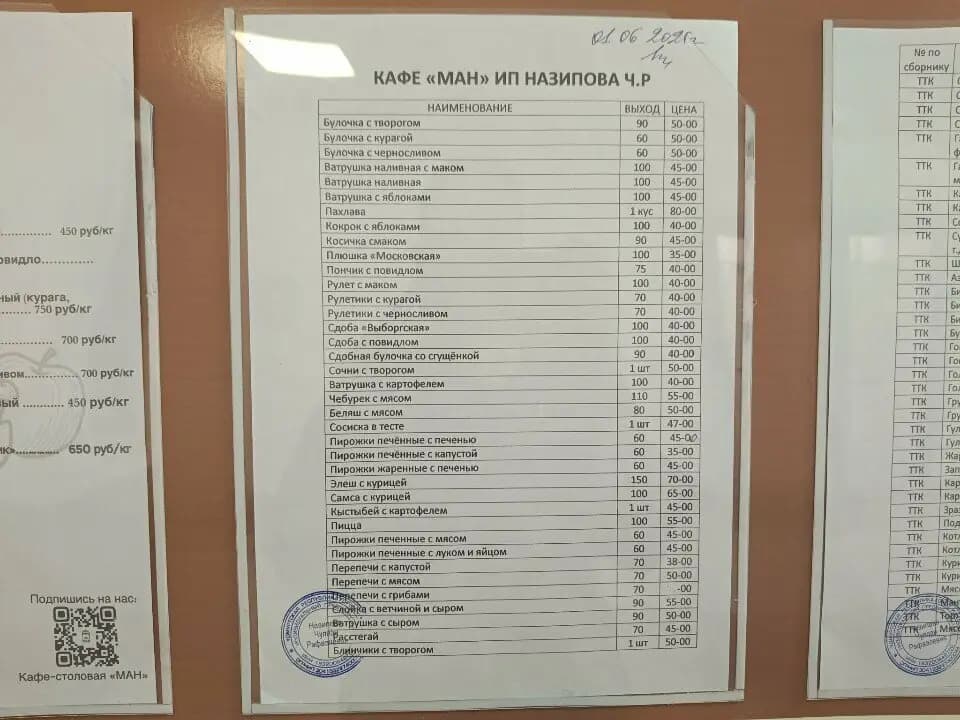 .............. 450 руб/кг
овидло..............
ный (курага,
......... 750 руб/кг
.............. 700 руб/кг
вом.............. 700 руб/кг
ый ............ 450 руб/кг
к»............... 650 руб/кг
Подпишись на нас:
Кафе-столовая «МАН»
01.06
КАФЕ «МАН» ИП НАЗИПОВА Ч.Р
НАИМЕНОВАНИЕ ВЫХОД ЦЕНА
Булочка с творогом 90 50-00
Булочка с курагой 60 50-00
Булочка с черносливом 60 50-00
Ватрушка наливная с маком 100 45-00
Ватрушка наливная 100 45-00
Ватрушка с яблоками 100 45-00
Пахлава 1 кус 80-00
Кокрок с яблоками 100 40-00
Косичка смаком 90 45-00
Плюшка «Московская» 100 35-00
Пончик с повидлом 75 40-00
Рулет с маком 100 40-00
Рулетики с курагой 70 40-00
Рулетики с черносливом 70 40-00
Сдоба «Выборгская» 100 40-00
Сдоба с повидлом 100 40-00
Сдобная булочка со сгущёнкой 90 40-00
Сочни с творогом 1 шт 50-00
Ватрушка с картофелем 100 40-00
Чебурек с мясом 110 55-00
Беляш с мясом 80 50-00
Сосиска в тесте 1 шт 47-00
Пирожки печённые с печенью 60 45-00
Пирожки печённые с капустой 60 35-00
Пирожки жаренные с печенью 60 45-00
Элеш с курицей 150 70-00
Самса с курицей 100 65-00
Кыстыбей с картофелем 1 шт 45-00
Пицца 100 55-00
Пирожки печенные с мясом 60 45-00
Пирожки печенные с луком и яйцом 60 45-00
Перепечи с капустой 70 38-00
Перепечи с мясом 70 50-00
Перепечи с грибами 70 -00
Слойка с ветчиной и сыром 90 55-00
Ватрушка с сыром 90 50-00
Расстегай 70 45-00
Блинчики с творогом 1 шт 50-00
№ по
сборнику
ТТК
ТТК
ТТК
ТТК
ТТК
ТТК
ТТК
ТТК
ТТК
ТТК
ТТК Ш
ТТК Аз
ТТК Би
ТТК Би
ТТК Би
ТТК Бу
ТТК Го
ТТК Го
ТТК Гол
ТТК Гол
ТТК Гру
ТТК Гру
ТТК Гул
ТТК Гул
ТТК Жар
ТТК Зап
ТТК Кар
ТТК Кар
ТТК Зраз
ТТК Под
ТТК Котл
ТТК Котл
ТТК Кури
ТТК Кури
ТТК Мясо
ТТК
ТТК
ТТК Мясо